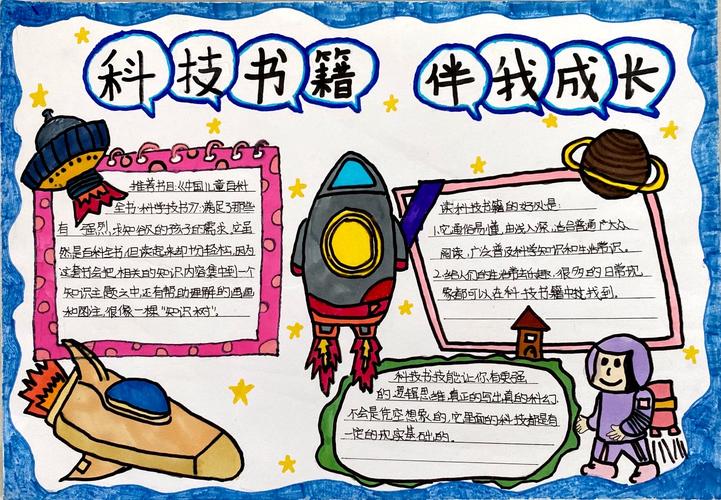 科技书籍 伴我成长
推荐书目:《中国儿童百科
全书·科学技术》满足了那些
有一强烈求知欲的孩子的需求,它虽
然是百科全书,但读起来却十分轻松,因为
这套书会把相关的知识内容集中到一个
知识主题之中,还有帮助理解的画画
和图注,很像一棵“知识树”。
读科技书籍的好处是:
1.它通俗易懂,由浅入深,适合普通广大众
阅读,广泛普及科学知识和生活常识。
2.给人们的生活带去乐趣,很多的日常现
象都可以在科技书籍中找到。
科技书技能让你有更强
的逻辑思维,真正的写出真的科幻,
不会是凭空想象的,它里面的科技都是有
一定的现实基础的。